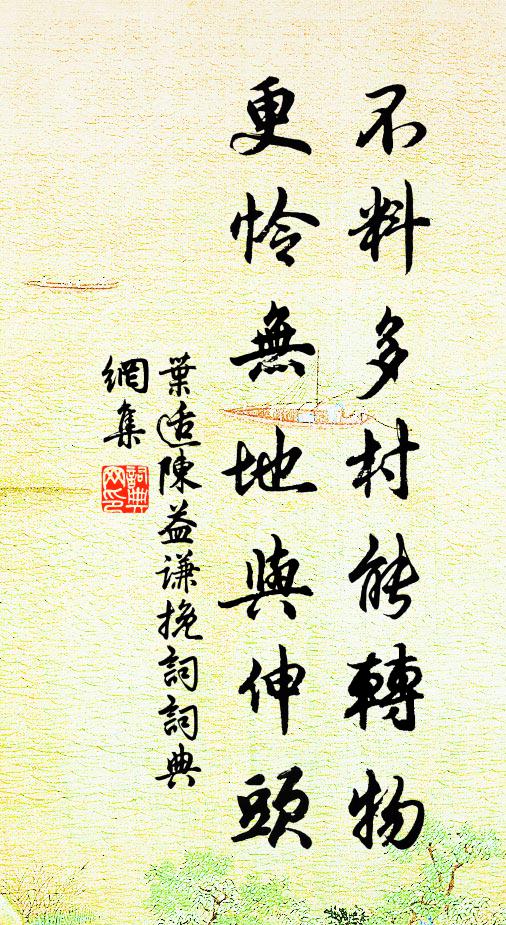 不料多村能轉物
更怜無地與伸頭
葉适陳益謙挽詞詞典
網集
詞典
网印